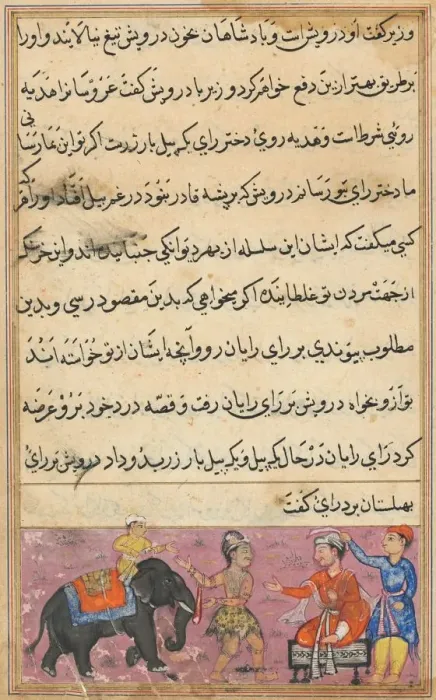 وزیر گفت او درویش است و پادشاهان بخون درویش تیغ نیالایند و او را
بر طریق بهتر ازین دفع خواهم کرد و زیر با درویش گفت عروسانرا هدیه
روئی شرط است و هدیه روئ دختر رای یک پیل بار زرست اگر تو این بما رسانی
ما دختر رای بتو رسانم درویش که بر پشه قادر نبود در غم پیل افتاد او را هر
کسی میگفت که ایشان این سلسله از بهر دیوانکی جنبانیده اند و این خر سنک
از جهت مردن تو غلطانیده اکر میخواهی که بدین مقصود رسی و بدین
مطلوب پیوندی بر رای رایان رو و آنچه ایشان از تو خواسته اند
تو ازو بخواه درویش بر رای رایان رفت و قصه درد خود برو عرضه
کرد رای رایان در حال یک پیل و یک پیل بار زر بدو داد درویش بر رای
بهلستان برد رای گفت